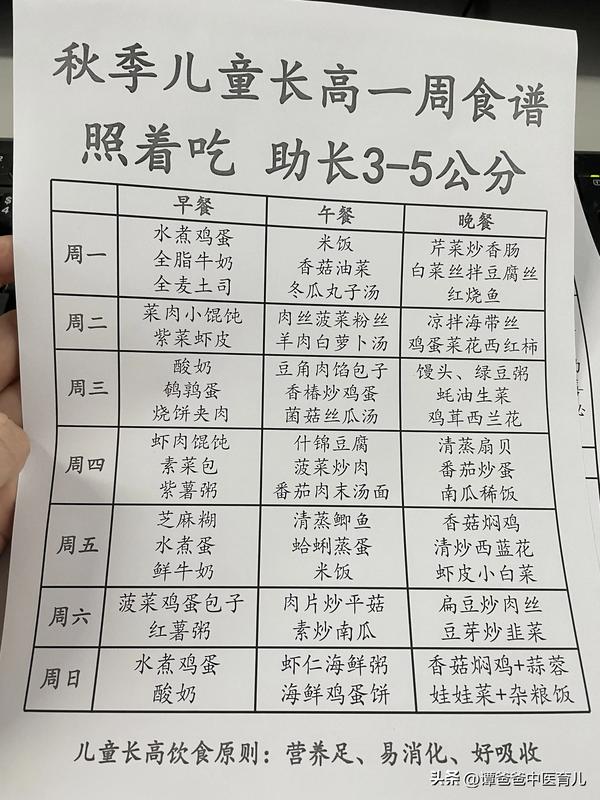 秋季儿童长高一周食谱
照着吃 助长3-5公分
早餐 午餐 晚餐
周一
水煮鸡蛋
全脂牛奶
全麦土司
米饭
香菇油菜
冬瓜丸子汤
芹菜炒香肠
白菜丝拌豆腐丝
红烧鱼
周二
菜肉小馄饨
紫菜虾皮
肉丝菠菜粉丝
羊肉白萝卜汤
凉拌海带丝
鸡蛋菜花西红柿
周三
酸奶
鹌鹑蛋
烧饼夹肉
豆角肉馅包子
香椿炒鸡蛋
菌菇丝瓜汤
馒头、绿豆粥
蚝油生菜
鸡茸西兰花
周四
虾肉馄饨
素菜包
紫薯粥
什锦豆腐
菠菜炒肉
番茄肉末汤面
清蒸扇贝
番茄炒蛋
南瓜稀饭
周五
芝麻糊
水煮蛋
鲜牛奶
清蒸鲫鱼
蛤蜊蒸蛋
米饭
香菇焖鸡
清炒西蓝花
虾皮小白菜
周六
菠菜鸡蛋包子
红薯粥
肉片炒平菇
素炒南瓜
扁豆炒肉丝
豆芽炒韭菜
周日
水煮鸡蛋
酸奶
虾仁海鲜粥
海鲜鸡蛋饼
香菇焖鸡+蒜蓉
娃娃菜+杂粮饭
儿童长高饮食原则：营养足、易消化、好吸收
头条 @谭爸爸中医育儿